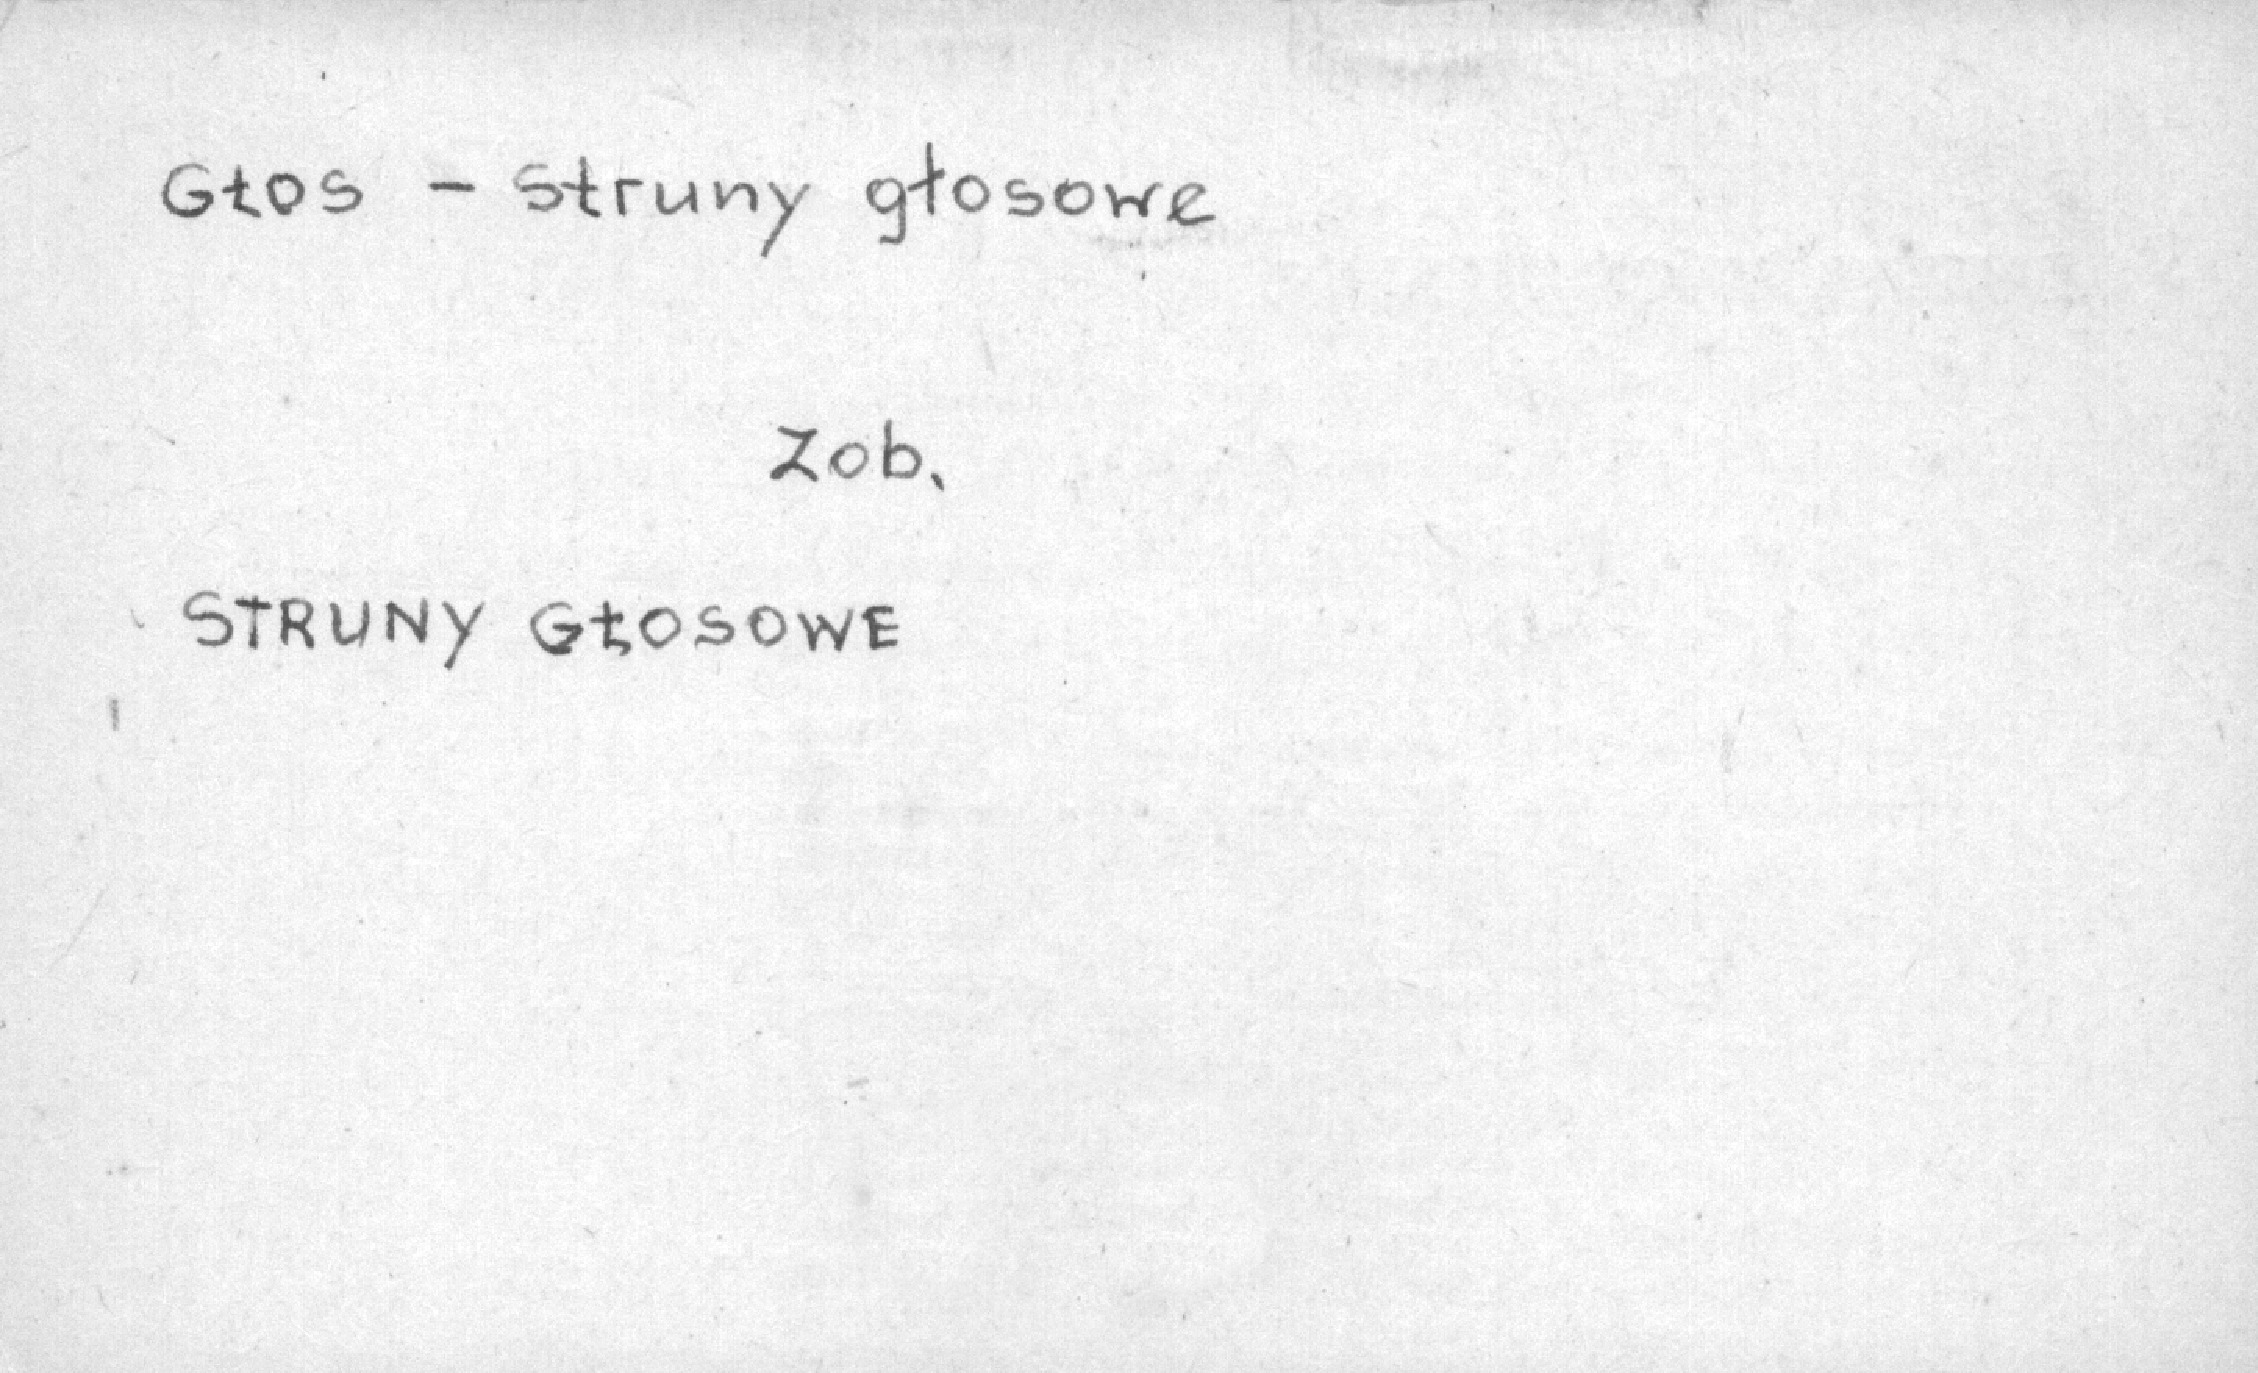 Głos - struny głosowe
Zob.
STRUNY GŁOSOWE